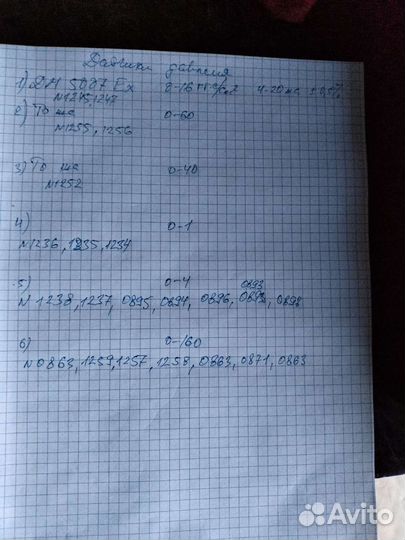 Датчики давления
1) ДМ 5007 Ex 0-16 кгс/см2 4-20 ма ±0,5%
N1245,1242
2) То же 0-60
N1255, 1256
3) То же 0-40
N1252
4) 0-1
N1236, 1235, 1234
5) 0-4
0893
N 1238, 1237, 0895, 0894, 0896, 0898
6) 0-160
N0863, 1259, 1257, 1258, 0863, 0871, 0863
Avito